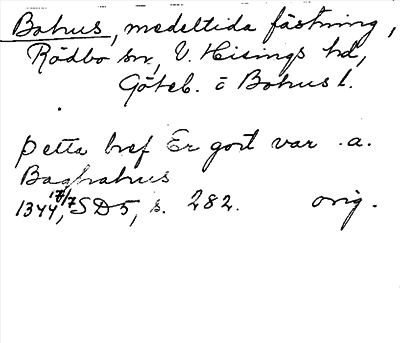 Bohus, medeltida fästning,
Rödbo sn, V. Hisings hd,
Göteb. o Bohus l.
þetta bref Er gort var .a.
Baghahus
1344 17/7, SD 5, s. 282. orig.